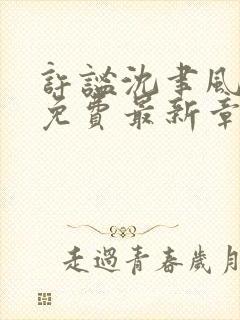 許謐沈聿風
免費最新章
走過青春歲月